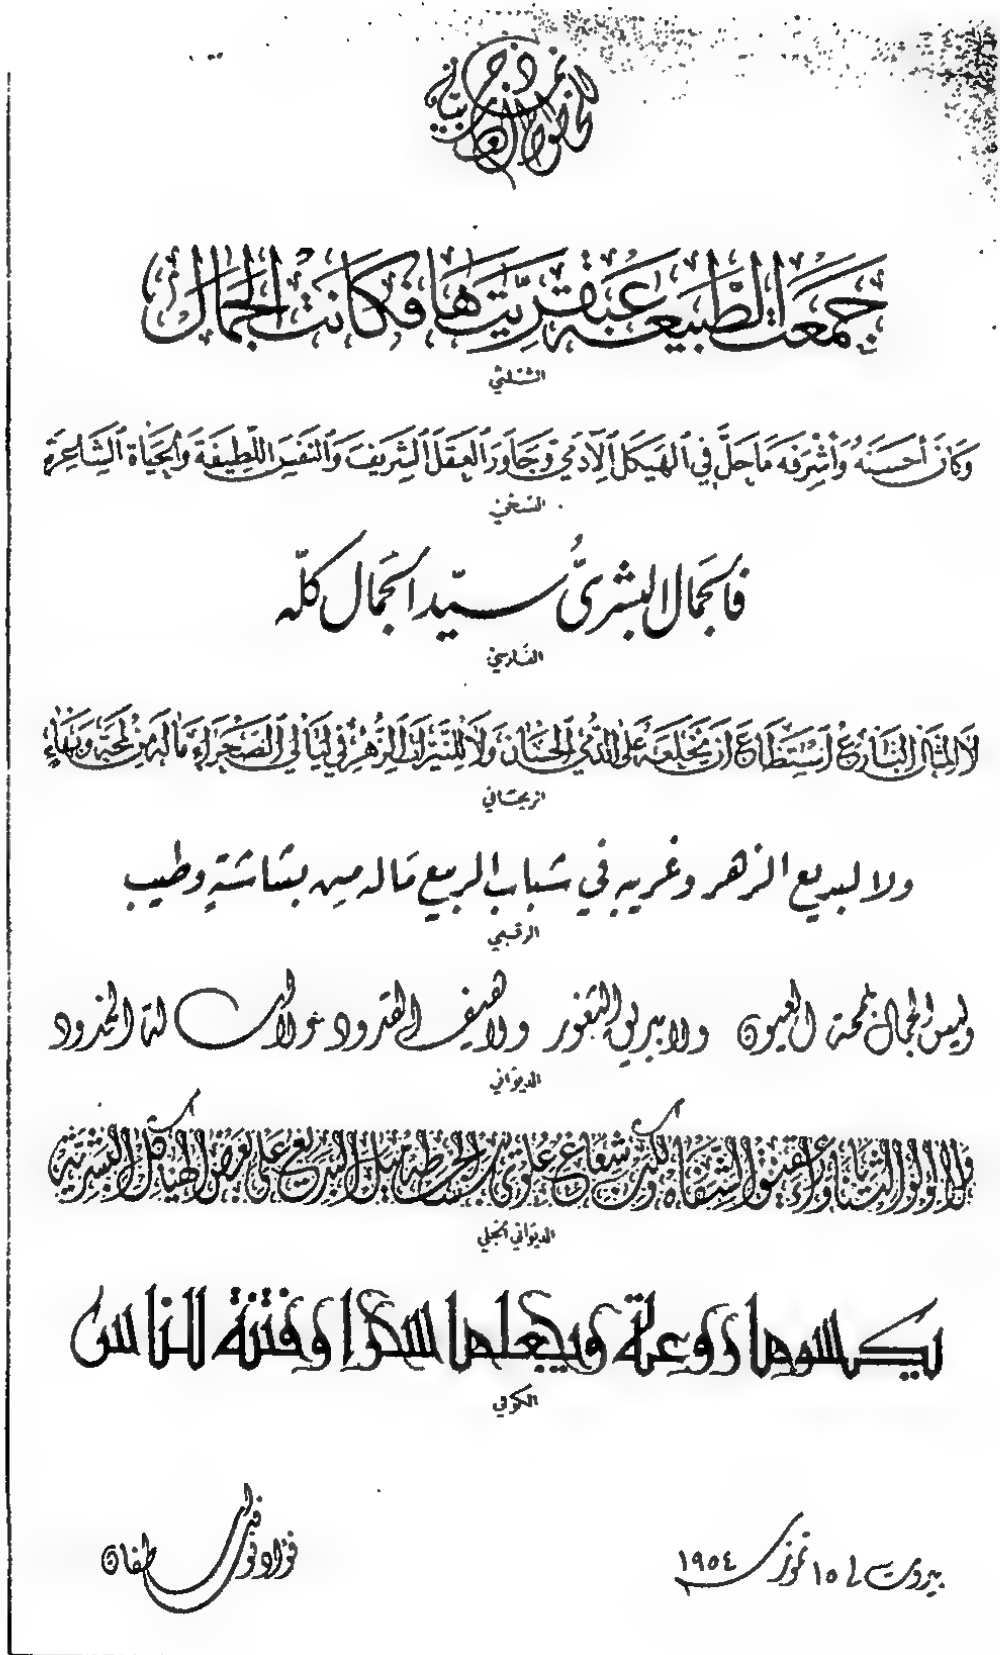 نموذج الخطوط العربية
جمعت الطبيعة عبقريتها فكانت الجمال
الثلثي
وكان أحسنه وأشرفه ما حل في الهيكل الآدمي وجاور العقل الشريف والنفس اللطيفة والحياة الشاعرة
النسخي
فالجمال البشري سيد الجمال كله
الفارسي
لا المثال البارع استطاع أن يخلعه على الدمى الحسان ولا للنيرات الزهر في ليالي الصحراء ما له من لمحة وبهاء
الريحاني
ولا لبديع الزهر وغريبه في شباب الربيع ما له من بشاشة وطيب
الرقعي
وليس الجمال بلمحة العيون ولا ببريق الثغور ولا هيف القدود ولا أسالة الخدود
الديواني
ولا لؤلؤ الثنايا وراء عقيق الشفاه ولكنه شعاع علوي يبسطه الجميل البديع على بعض الهياكل البشرية
الديواني الجلي
يكسوها روعة ويجعلها سحرا وفتنة للناس
الكوفي
بيروت في ١٥ تموز ١٩٥٤
فؤاد اسطفان